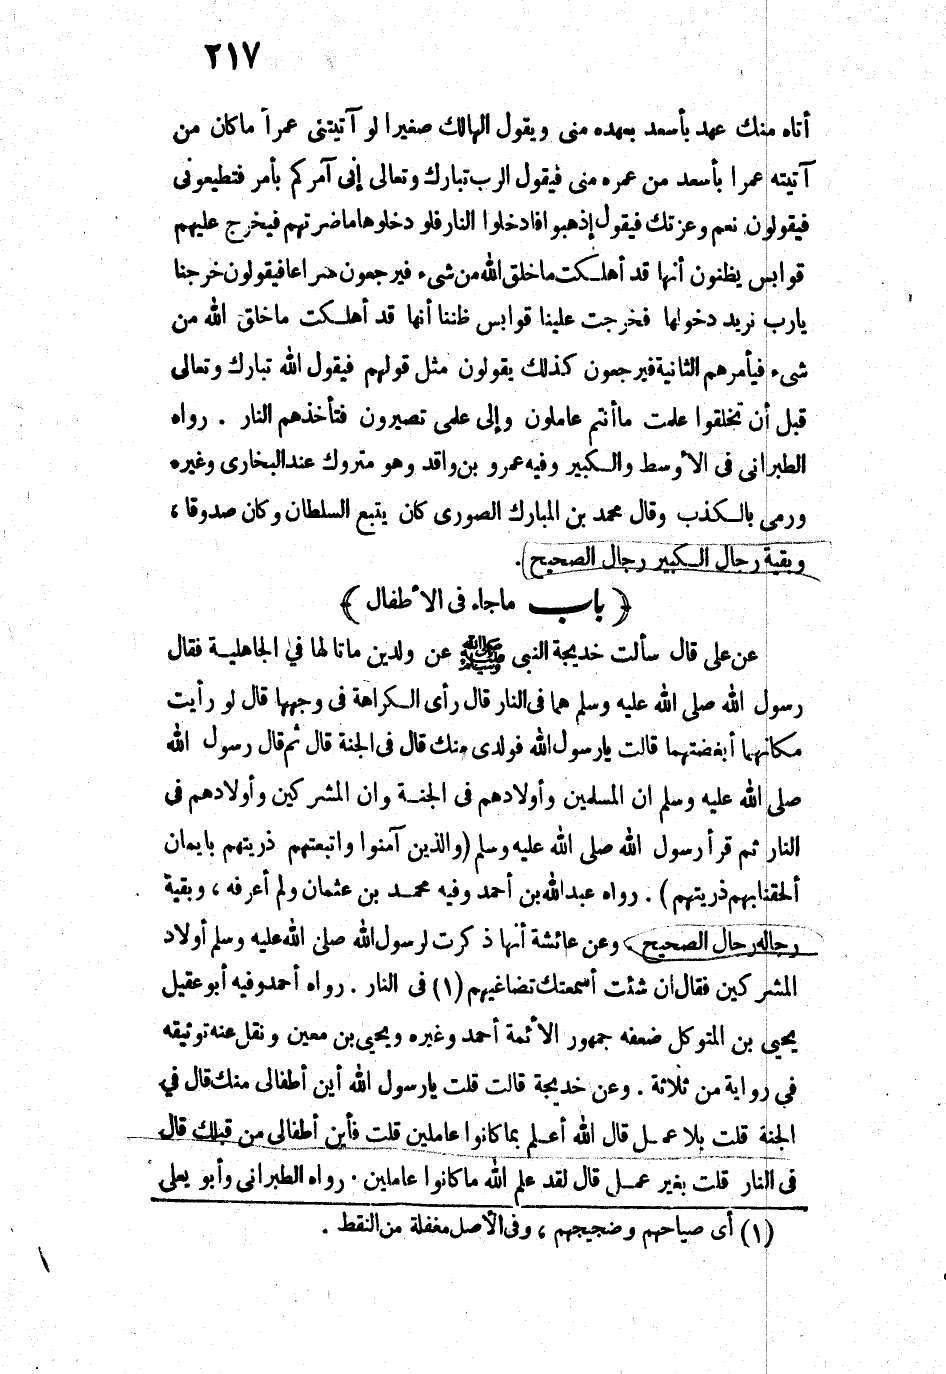 ٢١٧
أتاه منك عهد بأسعد بعهده منى ويقول الهالك صغيرا لو آتيتنى عمراً ماكان من
آتيته عمرا بأسعد من عمره منى فيقول الرب تبارك وتعالى إنى آمركم بأمر فتطيعونى
فيقولون نعم وعزتك فيقول إذهبوا فادخلوا النار فلو دخلوها ماضرتهم فيخرج عليهم
قوابس يظنون أنها قد أهلكت ماخلق الله من شىء فيرجعون سراعا فيقولون خرجنا
يارب نريد دخولها فخرجت علينا قوابس ظننا أنها قد أهلكت ماخلق الله من
شىء فيأمرهم الثانية فيرجعون كذلك يقولون مثل قولهم فيقول الله تبارك وتعالى
قبل أن تخلقوا علمت ماأنتم عاملون وإلى علمى تصيرون فتأخذهم النار . رواه
الطبرانى فى الأوسط والكبير وفيه عمرو بن واقد وهو متروك عند البخارى وغيره
ورمى بالكذب وقال محمد بن المبارك الصورى كان يتبع السلطان وكان صدوقا ،
وبقية رجال الكبير رجال الصحيح .
﴿ باب ماجاء فى الأطفال ﴾
عن على قال سألت خديجة النبى ﷺ عن ولدين ماتا لها في الجاهلية فقال
رسول الله صلى الله عليه وسلم هما فى النار قال رأى الكراهة فى وجهها قال لو رأيت
مكانهما أبغضتهما قالت يارسول الله فولدى منك قال فى الجنة قال ثم قال رسول الله
صلى الله عليه وسلم ان المسلمين وأولادهم فى الجنة وان المشركين وأولادهم فى
النار ثم قرأ رسول الله صلى الله عليه وسلم (والذين آمنوا واتبعتهم ذريتهم بايمان
ألحقنابهم ذريتهم) . رواه عبدالله بن أحمد وفيه محمد بن عثمان ولم أعرفه ، وبقية
رجاله رجال الصحيح . وعن عائشة أنها ذكرت لرسول الله صلى الله عليه وسلم أولاد
المشركين فقال ان شئت أسمعتك تضاغيهم (١) فى النار . رواه أحمد وفيه أبو عقيل
يحيى بن المتوكل ضعفه جمهور الأئمة أحمد وغيره ويحيى بن معين ونقل عنه توثيقه
في رواية من ثلاثة . وعن خديجة قالت قلت يارسول الله أين أطفالى منك قال في
الجنة قلت بلا عمل قال الله أعلم بما كانوا عاملين قلت فأين أطفالى من قبلك قال
فى النار قلت بغير عمل قال لقد علم الله ما كانوا عاملين . رواه الطبرانى وأبو يعلى
(١) أى صياحهم وضجيجهم ، وفى الأصل مغفلة من النقط .